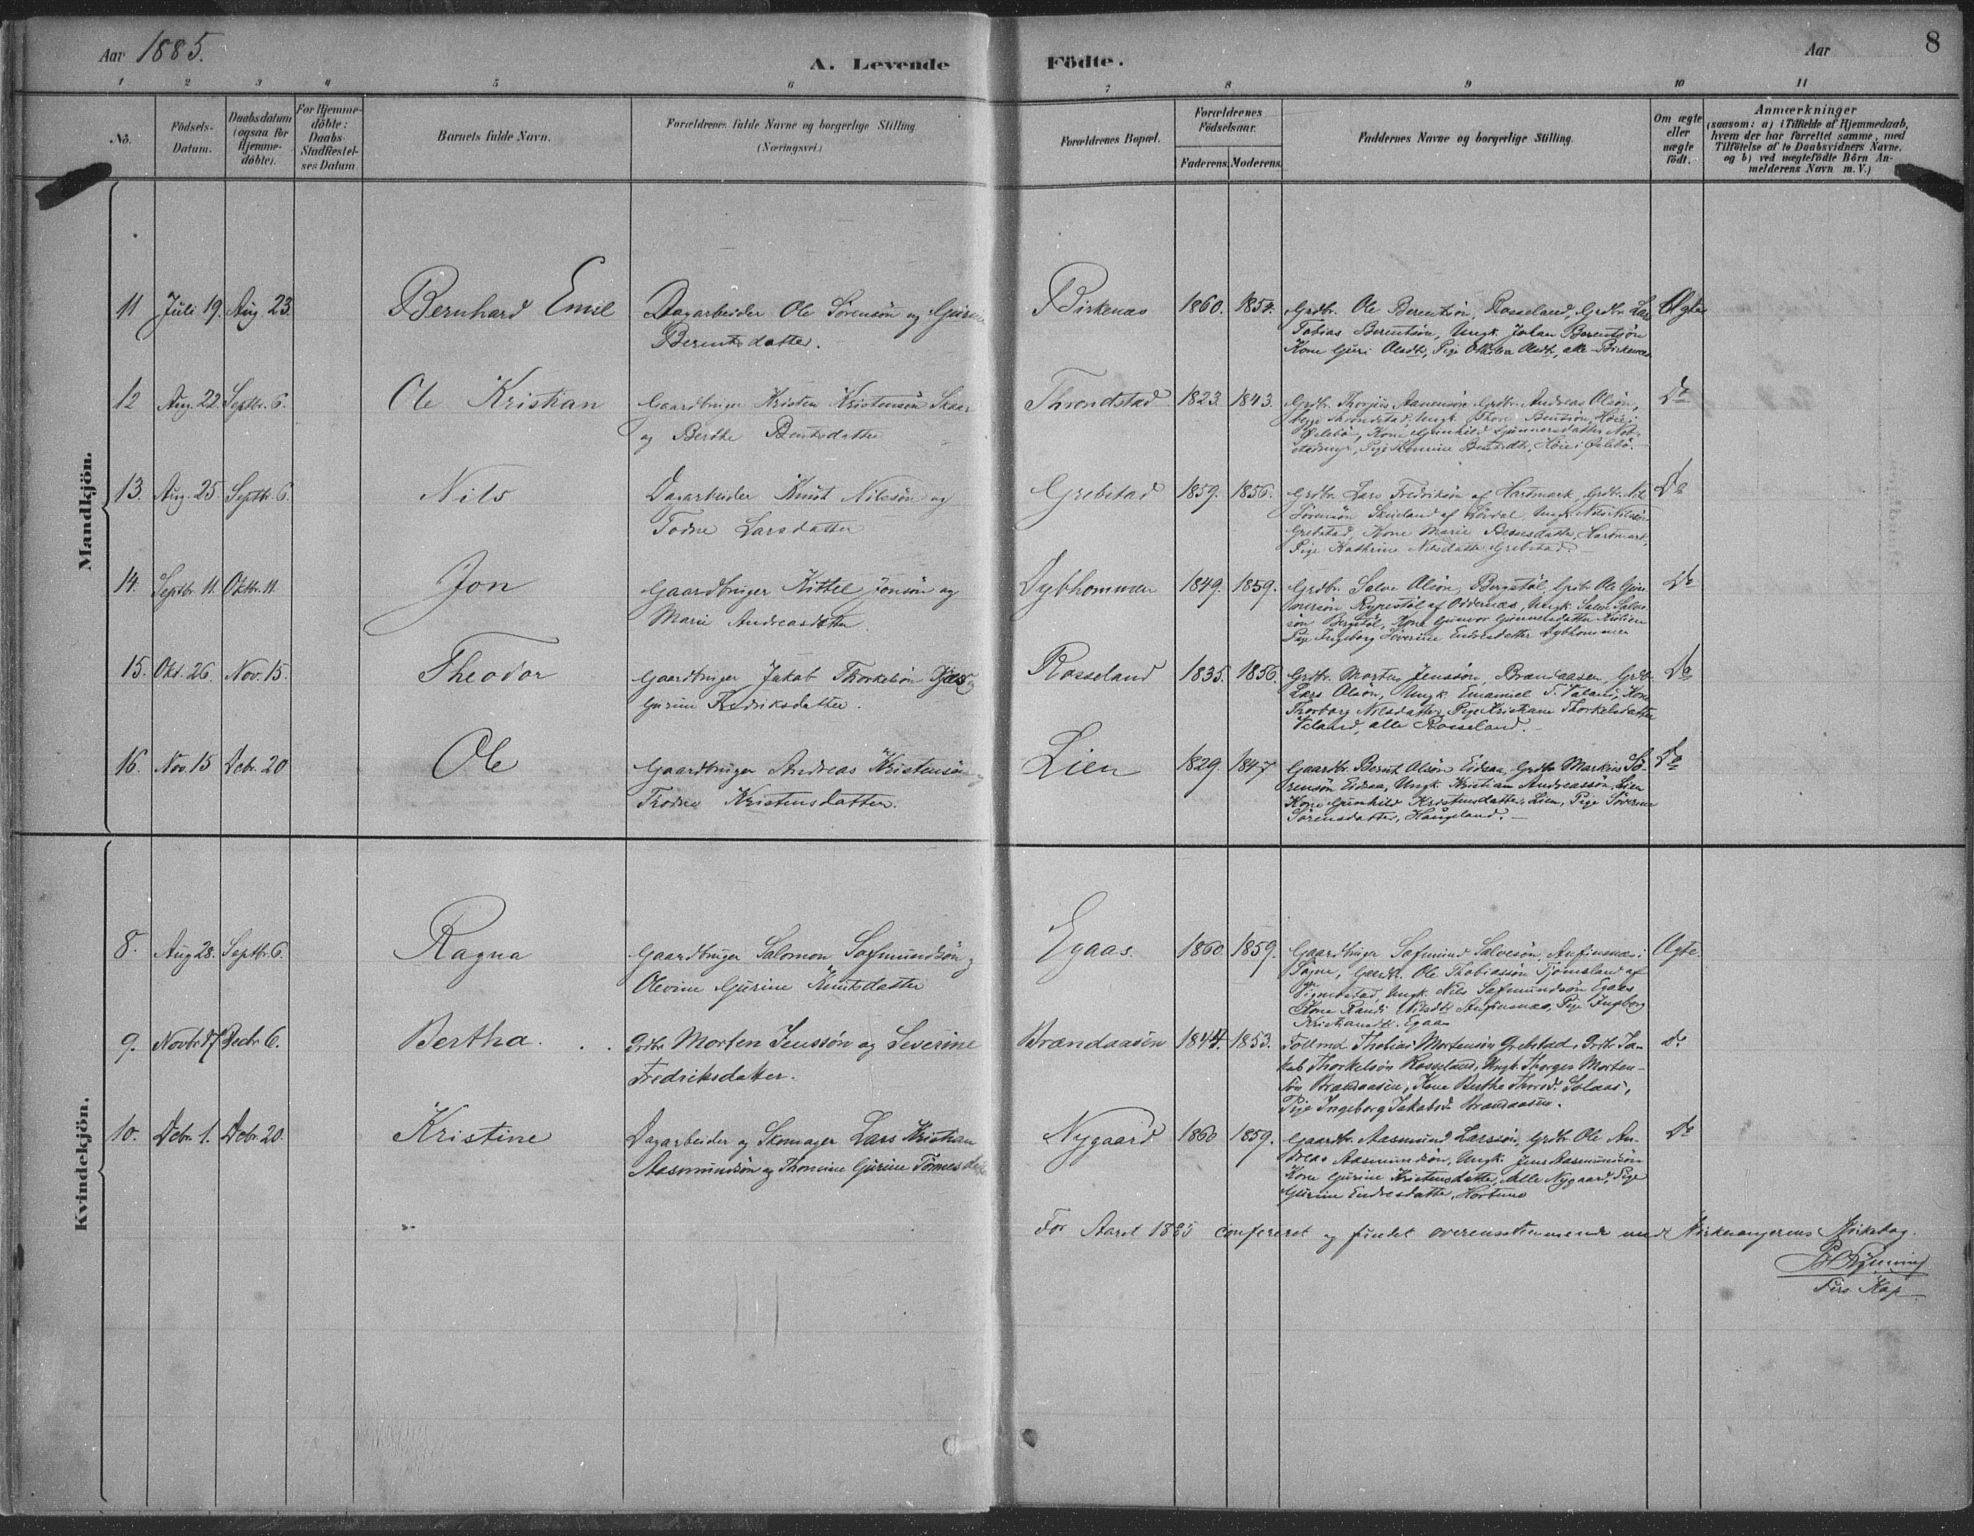 Aar 1885.
A. Levende Födte.
Aar
8
1 2 3 4 5 6 7 8 9 10 11
No.
Födsels-Datum.
Daabsdatum (ogsaa for Hjemme-döbte).
For Hjemme-döbte: Daabs-Stadfæstelses Datum
Barnets fulde Navn.
Forældrenes fulde Navne og borgerlige Stilling (Næringsvei.)
Forældrenes Bopæl.
Forældrenes Födselsaar.
Faderens. Moderens.
Faddernes Navne og borgerlige Stilling.
Om ægte eller uægte födt.
Anmærkninger
(saasom: a) i Tilfælde af Hjemmedaab,
hvem der har forrettet samme, med
Tilföielse af to Daabsvidners Navne.
og b) ved uægtefödte Börn An-
melderens Navn m. V.)
Mandkjön.
11 Juli 19. Aug 23. Bernhard Emil Dagarbeider Ole Sörensön og Gurine
Berentsdatter.
Birkenæs 1860. Grdbr. Ole Berentsön, Rosseland, Grdbr. Lars
Tobias Berentsön, Ungk. Johan Berentsön
Kone Guri Olsdt., Pige Olsdt., alle Birkenæs
Ægte
12 Aug. 22 Septbr. 6. Ole Kristian Gaardbruger Kristen Kristensön Skaar
og Berthe Bentsdatter
Throndstad 1823. 1843. Grdbr. Aanensön, Grdbr. Andreas Olsön,
Do
13. Aug. 25 Septbr. 6. Nils Dagarbeider Knut Nilssön og
Todne Larsdatter
Grebstad 1859. 1856. Grdbr. Lars Fredriksön af Hartmark, Grdbr. Nils
Sörensön af Ungk. Nils Nilssön
Grebstad, Kone Marie Hartmark,
Pige Kathrine Nilsdatter Grebstad.
Do
14. Septbr. 11. Oktbr. 11. Jon Gaardbruger Kittel Jonsön og
Marie Andreasdatter
Dybhommen 1849. 1859. Grdbr. Salve Olsön, Bergstöl, Grdbr. Ole
af Oddernæs, Ungk. Salve Salve-
sön Bergstöl, Kone Gunvor
Pige Ingeborg Severine Endresdatter Dybhommen
Do
15. Okt. 26. Nov. 15. Theodor Gaardbruger Jakob Thorkelsön og
Gurine Fredriksdatter.
Rosseland 1835. 1856. Grdbr. Morten Jenssön, Brandaasen, Grdbr.
Lars Olsön, Ungk. Emanuel T. Kone
Thorborg Nilsdatter, Pige Kristiane Thorkelsdatter
alle Rosseland.
Do
16. Nov. 15 Debr. 20 Ole Gaardbruger Andreas Kristensön og
Todne Kristensdatter.
Lien 1829. 1847. Gaardbr. Bernt Olsön Eidsaa, Grdbr. Markus Sö-
rensön Eidsaa, Ungk. Kristian Andreassön, Lien
Kone Gunhild Kristensdatter, Lien, Pige Severine
Sörensdatter, Haugeland.
Do
Kvindekjön.
8. Aug 28. Septbr. 6. Ragna Gaardbruger Salomon Safmundsön og
Olevine Gurine Knutsdatter
Egaas. 1860 1859. Gaardbruger Safmund Salvesön, Anfinsnæs i
Søgne, Gaardb. Ole Thobiassön Tjomsland af
Ungk. Nils Safmundsön Egaas
Kone Randi Nilsdt. Anfinsnæs, Pige Ingeborg
Kristiansdt. Egaas
Ægte.
9. Novbr. 17 Decbr 6. Bertha. Grdbr Morten Jenssön og Severine
Fredriksdatter.
Brandaasen 1844. 1853. Thobias Mortensön Grebstad, Grdbr. Ja-
kob Thorkelsön Rosseland, Ungk. Thorges Morten-
sön Brandaasen, Kone Berthe Solaas,
Pige Ingeborg Jakobsd. Brandaasen.
do
10. Debr. 1. Debr. 20. Kristine Dagarbeider og Skomager Lars Kristian
Aasmundsön og Thomine Gurine Tönnesdatter
Nygaard 1860 1859. Gaardbr. Aasmund Larssön, Grdbr. Ole An-
dreas Aasmundsön, Ungk. Jens Aasmundsön
Kone Gurine Kristensdatter, Alle Nygaard, Pige
Gurine Endresdatter,
Do
For Aaret 1885 confereret og fundet overensstemmende med Kirkesangerens Kirkebog.
Pers. Kap